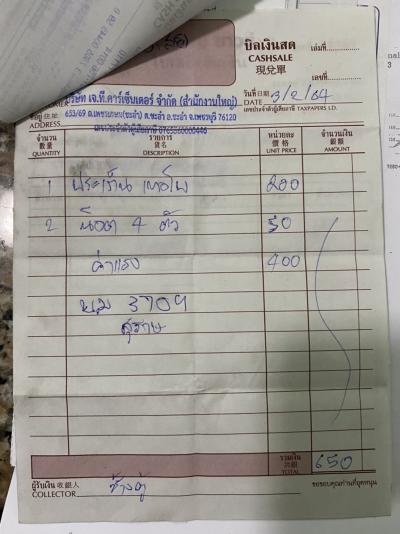 บิลเงินสด
CASHSALE
現兌單
เล่มที่
เลขที่
บริษัท เจ.ที.คาร์เซ็นเตอร์ จำกัด (สำนักงานใหญ่)
วันที่ 日期 3/2/64
DATE
ที่อยู่ 住址 653/69 ถ.เพชรเกษม(ชะอำ) ต.ชะอำ อ.ชะอำ จ.เพชรบุรี 76120
ADDRESS
เลขประจำตัวผู้เสียภาษี TAXPAPERS I.D.
จำนวน รายการ หน่วยละ จำนวนเงิน
數量 貨名 價格 銀額
QUANTITY DESCRIPTION UNIT PRICE AMOUNT
1 ประเก็น เทอร์โบ 200
2 น็อต 4 ตัว 50
ค่าแรง 400
รวมเงิน
共銀
TOTAL 650
ผู้รับเงิน 收銀人
COLLECTOR
ขอขอบคุณท่านที่อุดหนุน